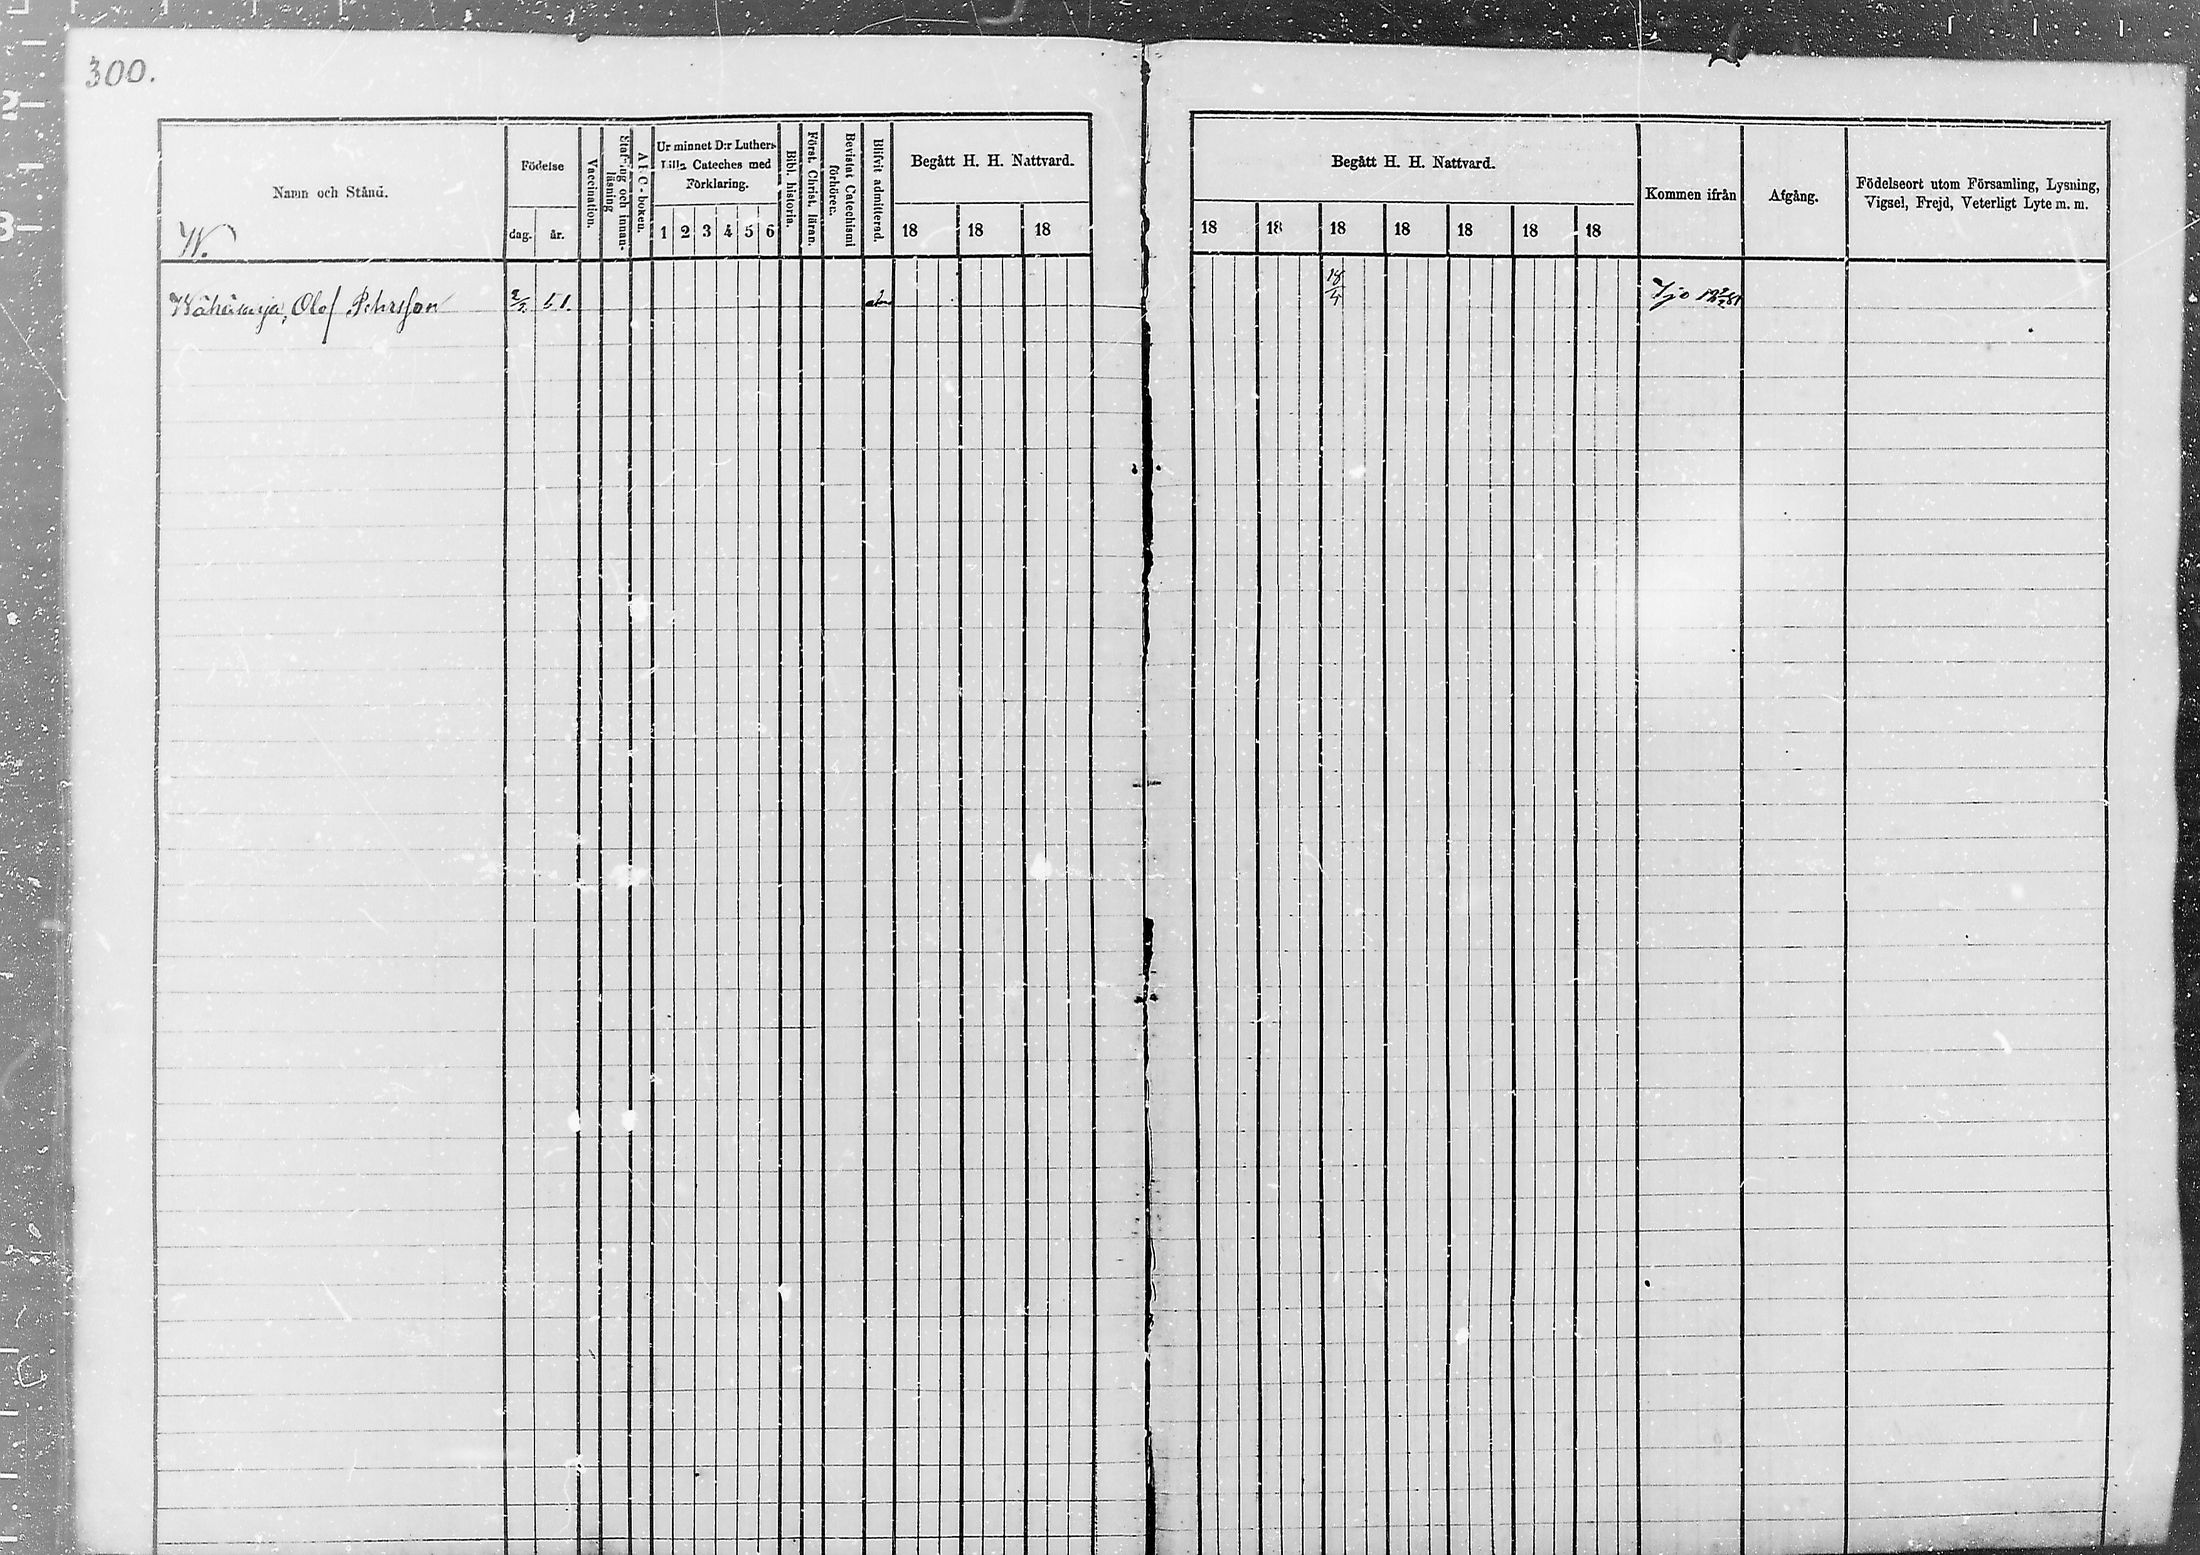 300.
Namn och Stånd.
W.
Födelse
dag. år.
Vaccination.
Stafning och innan-läsning
ABC-boken.
Ur minnet D:r Luthers
Lilla Cateches med
Förklaring.
1 2 3 4 5 6
Bibl. historia.
Först. Christ. läran.
Bevistat Catechismi
förhören.
Blifvit admitterad.
Begått H. H. Nattvard.
18 18 18
Begått H. H. Nattvard.
18 18 18 18 18 18 18
Kommen ifrån
Afgång.
Födelseort utom Församling, Lysning,
Vigsel, Frejd, Veterligt Lyte m. m.
Olof Pehrsson 51. 18/4 Ijo